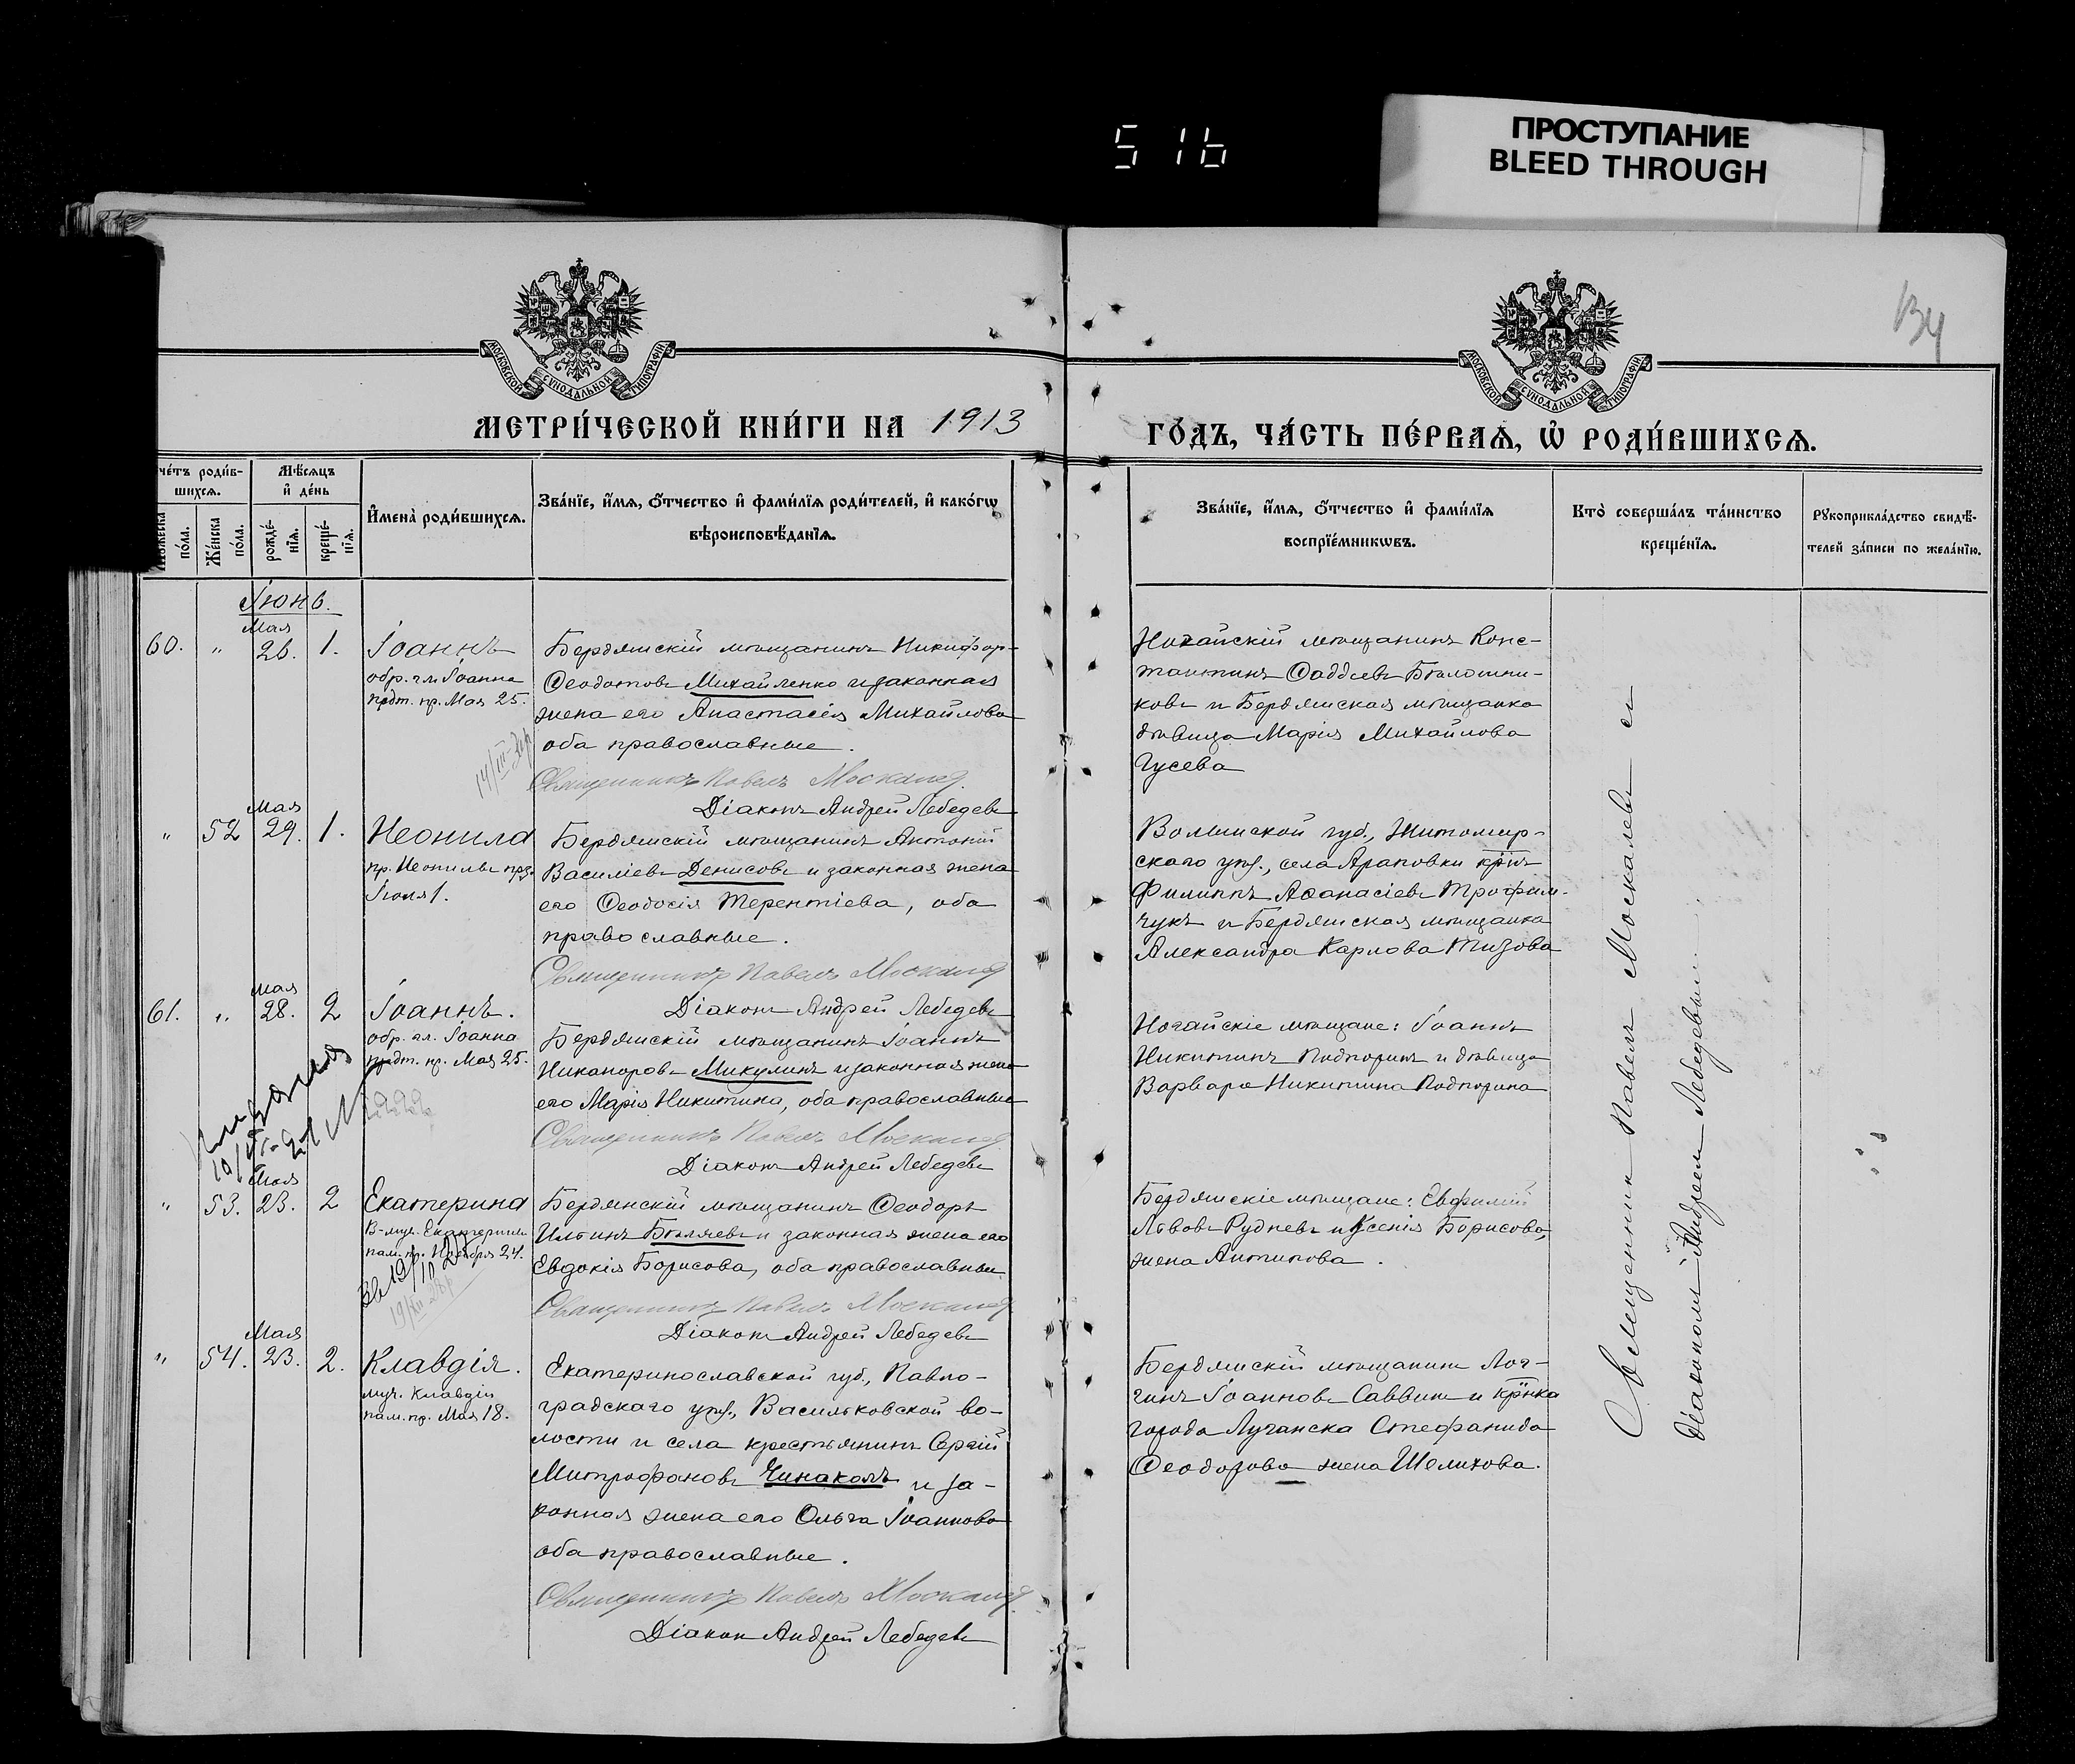 516
ПРОСТУПАНИЕ
BLEED THROUGH
134
МОСКОВСКОЙ СѴНОДАЛЬНОЙ ТИПОГРАФІИ
МОСКОВСКОЙ СѴНОДАЛЬНОЙ ТИПОГРАФІИ
МЕТРИ́ЧЕСКОЙ КНИ́ГИ НА 1913
ГО́ДЪ, ЧА́СТЬ ПЕ́РВАѦ, Ѡ҆ РОДИ́ВШИХСѦ.
че́тъ роди́в-
шихсѧ.
Мѣ́сѧцъ
и҆ де́нь
Же́нска
по́ла.
по́ла.
рожде́-
нїѧ.
креще́-
нїѧ.
И҆мена̀ роди́вшихсѧ.
Зва́нїе, и҆́мѧ, ѻ҆́тчество и҆ фами́лїѧ роди́телей, и҆ како́гѡ
вѣроисповѣ́данїѧ.
Зва́нїе, и҆́мѧ, ѻ҆́тчество и҆ фами́лїѧ
воспрїе́мникѡвъ.
Кто̀ соверша́лъ та́инство
креще́нїѧ.
Рꙋкоприкла́дство свидѣ́-
телей за́писи по жела́нїю.
Іюнь.
Мая
60. " 26. 1. Іоаннъ
обр. гл. Іоанна
прдт. пр. Мая 25.
Бердянскій мѣщанинъ Никифоръ
Ѳеодотовъ Михайленко и законная
жена его Анастасія Михайлова
оба православные.
Священникъ Павелъ Москалев
Діаконъ Андрей Лебедевъ
Ногайскій мѣщанинъ Конс-
тантинъ Ѳаддеевъ Бѣлошни-
ковъ и Бердянская мѣщанка
дѣвица Марія Михайлова
Гусева
Мая
" 52 29. 1. Неонила
пр. Неонилы прз.
Іюня 1.
Бердянскій мѣщанинъ Антоній
Василіевъ Денисовъ и законная жена
его Ѳеодосія Терентіева, оба
православные.
Священникъ Павелъ Москалев
Діаконъ Андрей Лебедевъ
Волынской губ., Житомир-
скаго уѣз., села Араповки кр̄нъ
Филиппъ Аѳанасіевъ Трофим-
чукъ и Бердянская мѣщанка
Александра Карлова Тизова
Мая
61. " 28. 2 Іоаннъ.
обр. гл. Іоанна
прдт. пр. Мая 25.
Бердянскій мѣщанинъ Іоаннъ
Никаноровъ Микулинъ и законная жена
его Марія Никитина, оба православные
Священникъ Павелъ Москалев
Діаконъ Андрей Лебедевъ
Ногайскіе мѣщане: Іоаннъ
Никитинъ Подпоринъ и дѣвица
Варвара Никитина Подпорина
Мая
" 53. 23. 2 Екатерина
В-муч. Екатерины
пам. пр. Ноября 24.
Бердянскій мѣщанинъ Ѳеодоръ
Ильинъ Бѣляевъ и законная жена его
Евдокія Борисова, оба православные
Священникъ Павелъ Москалев
Діаконъ Андрей Лебедевъ
Бердянскіе мѣщане: Евфимій
Львовъ Рудневъ и Ксенія Борисова,
жена Антипова.
Мая
" 54. 23. 2. Клавдія.
муч. Клавдіи
пам. пр. Мая 18.
Екатеринославской губ., Павло-
градскаго уѣз., Васильковской во-
лости и села крестьянинъ Сергій
Митрофановъ Чинакалъ и за-
конная жена его Ольга Іоаннова
оба православные.
Священникъ Павелъ Москалев
Діаконъ Андрей Лебедевъ
Бердянскій мѣщанинъ Лог-
гинъ Іоанновъ Саввинъ и кр̄нка
города Луганска Стефанида
Ѳеодорова жена Шелихова.
Священникъ Павелъ Москалевъ съ
діакономъ Андреемъ Лебедевымъ.